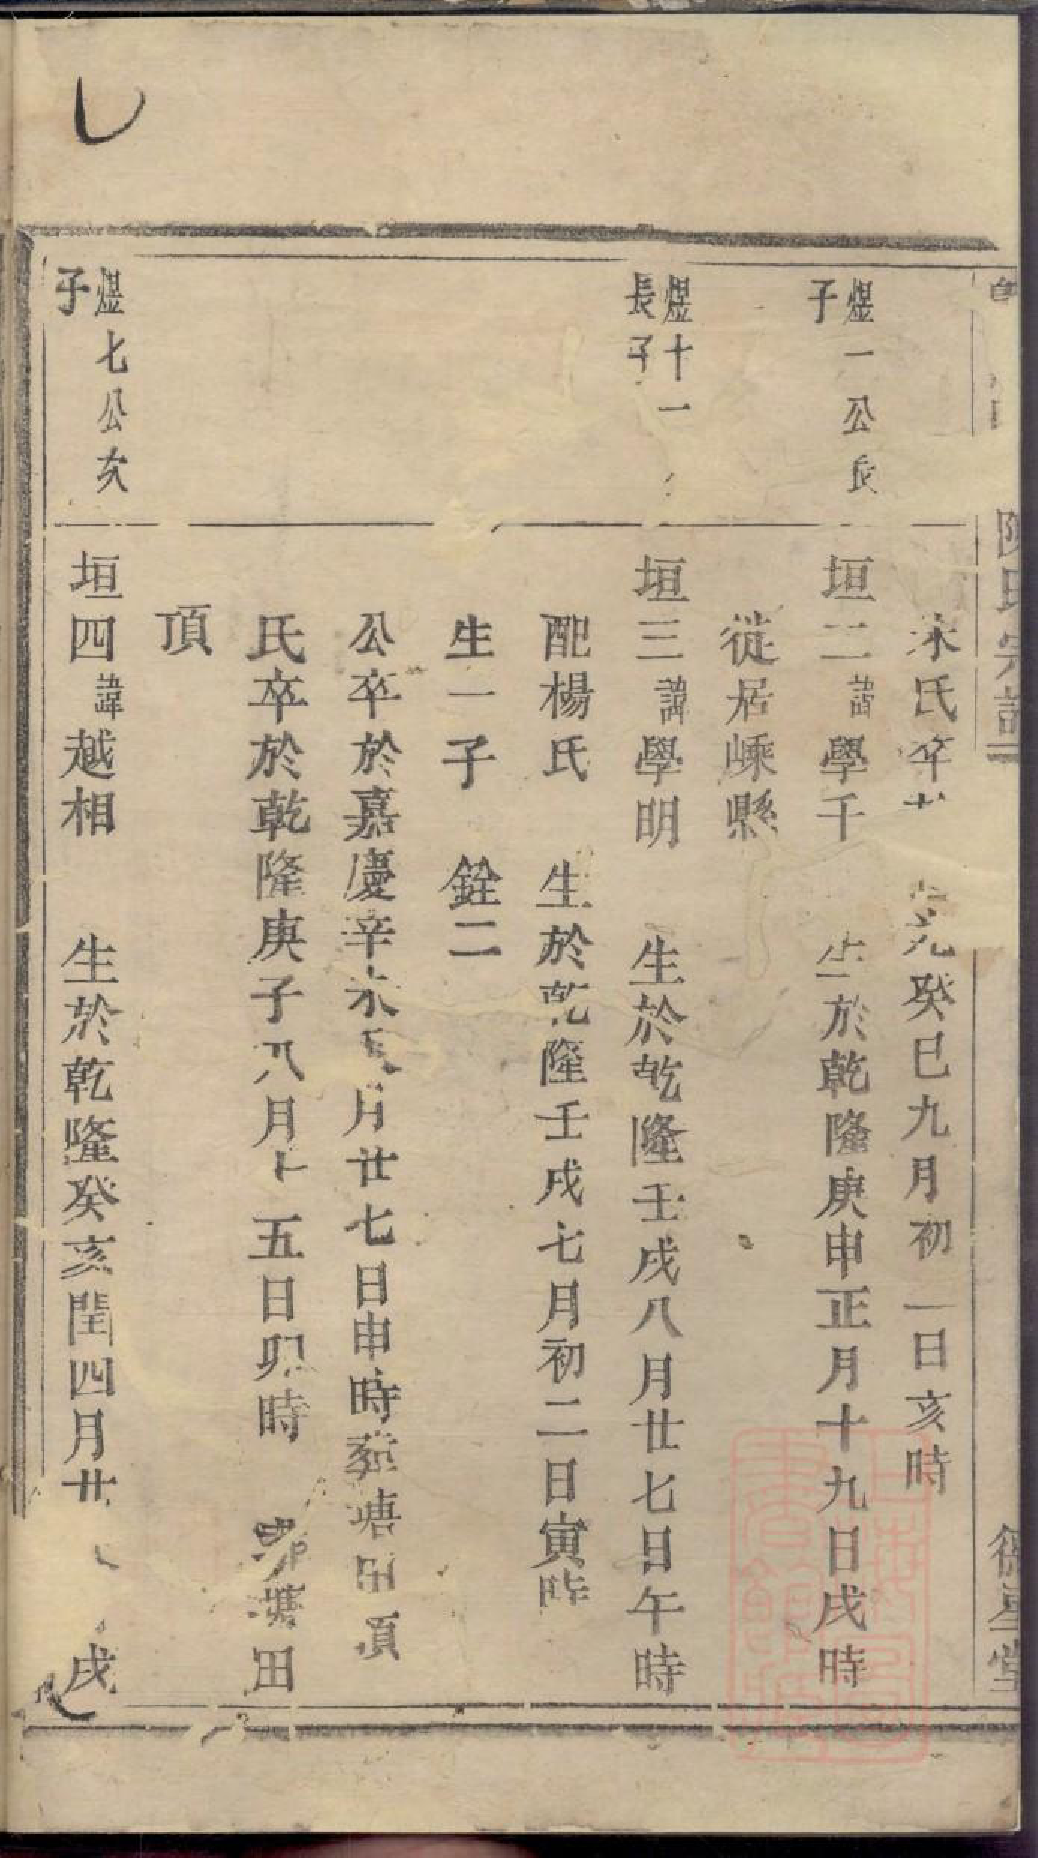 陳氏宗譜
德星堂
宋氏卒於 癸巳九月初一日亥時
煜一公長
子
垣二諱學千 生於乾隆庚申正月十九日戌時
徙居嵊縣
煜十一
長子
垣三諱學明 生於乾隆壬戌八月廿七日午時
配楊氏 生於乾隆壬戌七月初二日寅時
生一子 銓二
公卒於嘉慶辛未 月廿七日申時葬塘田頂
氏卒於乾隆庚子八月十五日卯時 塘田
頂
煜七公次
子
垣四諱越相 生於乾隆癸亥閏四月廿 戌